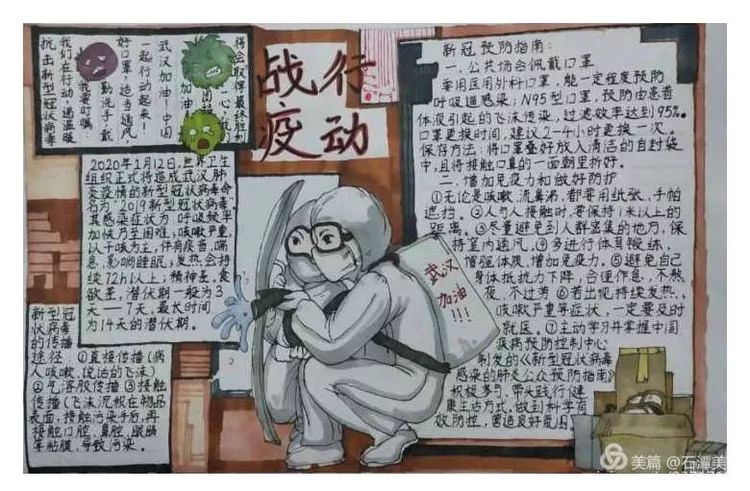 将会取得最终胜利
武汉加油！中国
加油
一起行动起来！
好口罩，适当通风，
勤洗手，戴
我要叮嘱，
我们在行动，递温暖
抗击新型冠状病毒
战疫
行动
2020年1月12日，世界卫生
组织正式将造成武汉肺
炎疫情的新型冠状病毒命
名为“2019新型冠状病毒”
其感染症状为 呼吸频率
加快乃至困难，咳嗽严重，
以干咳为主，伴有痰音，喘
息，影响睡眠；发热会持
续72h以上；精神差，食
欲差，潜伏期一般为3
天——7天，最长时间
为14天的潜伏期。
新型冠
状病毒
的传播
途径：①直接传播（病
人咳嗽，说话的飞沫）
②气溶胶传播③接触
传播（飞沫沉积在物品
表面，接触污染手后，再
接触口腔，鼻腔，眼睛
等粘膜，导致污染。
武汉
加油
!!!
新冠预防指南：
一、公共场合佩戴口罩
要用医用外科口罩，能一定程度预防
呼吸道感染；N95型口罩，预防由患者
体液引起的飞沫传染，过滤效率达到95%。
口罩更换时间，建议2—4小时更换一次。
保存方法：将口罩叠好放入清洁的自封袋
中，且将接触口鼻的一面朝里折好。
二、增加免疫力和做好防护
①无论是咳嗽，流鼻涕，都要用纸张，手帕
遮挡。②人与人接触时，要保持1米以上的
距离。③尽量避免到人群密集的地方，保
持室内通风，④多进行体育锻练，
增强体质，增加免疫力。⑤避免自己
身体抵抗力下降，合理作息，不熬
夜，不过劳⑥若出现持续发热、
咳嗽严重等症状，一定要及时
就医。⑦主动学习并掌握中国
疾病预防控制中心
制发的《新型冠状病毒
感染的肺炎公众预防指南》
积极参与，带头践行健
康生活方式，做到科学有
效防控，营造良好氛围
美篇 @石潭美